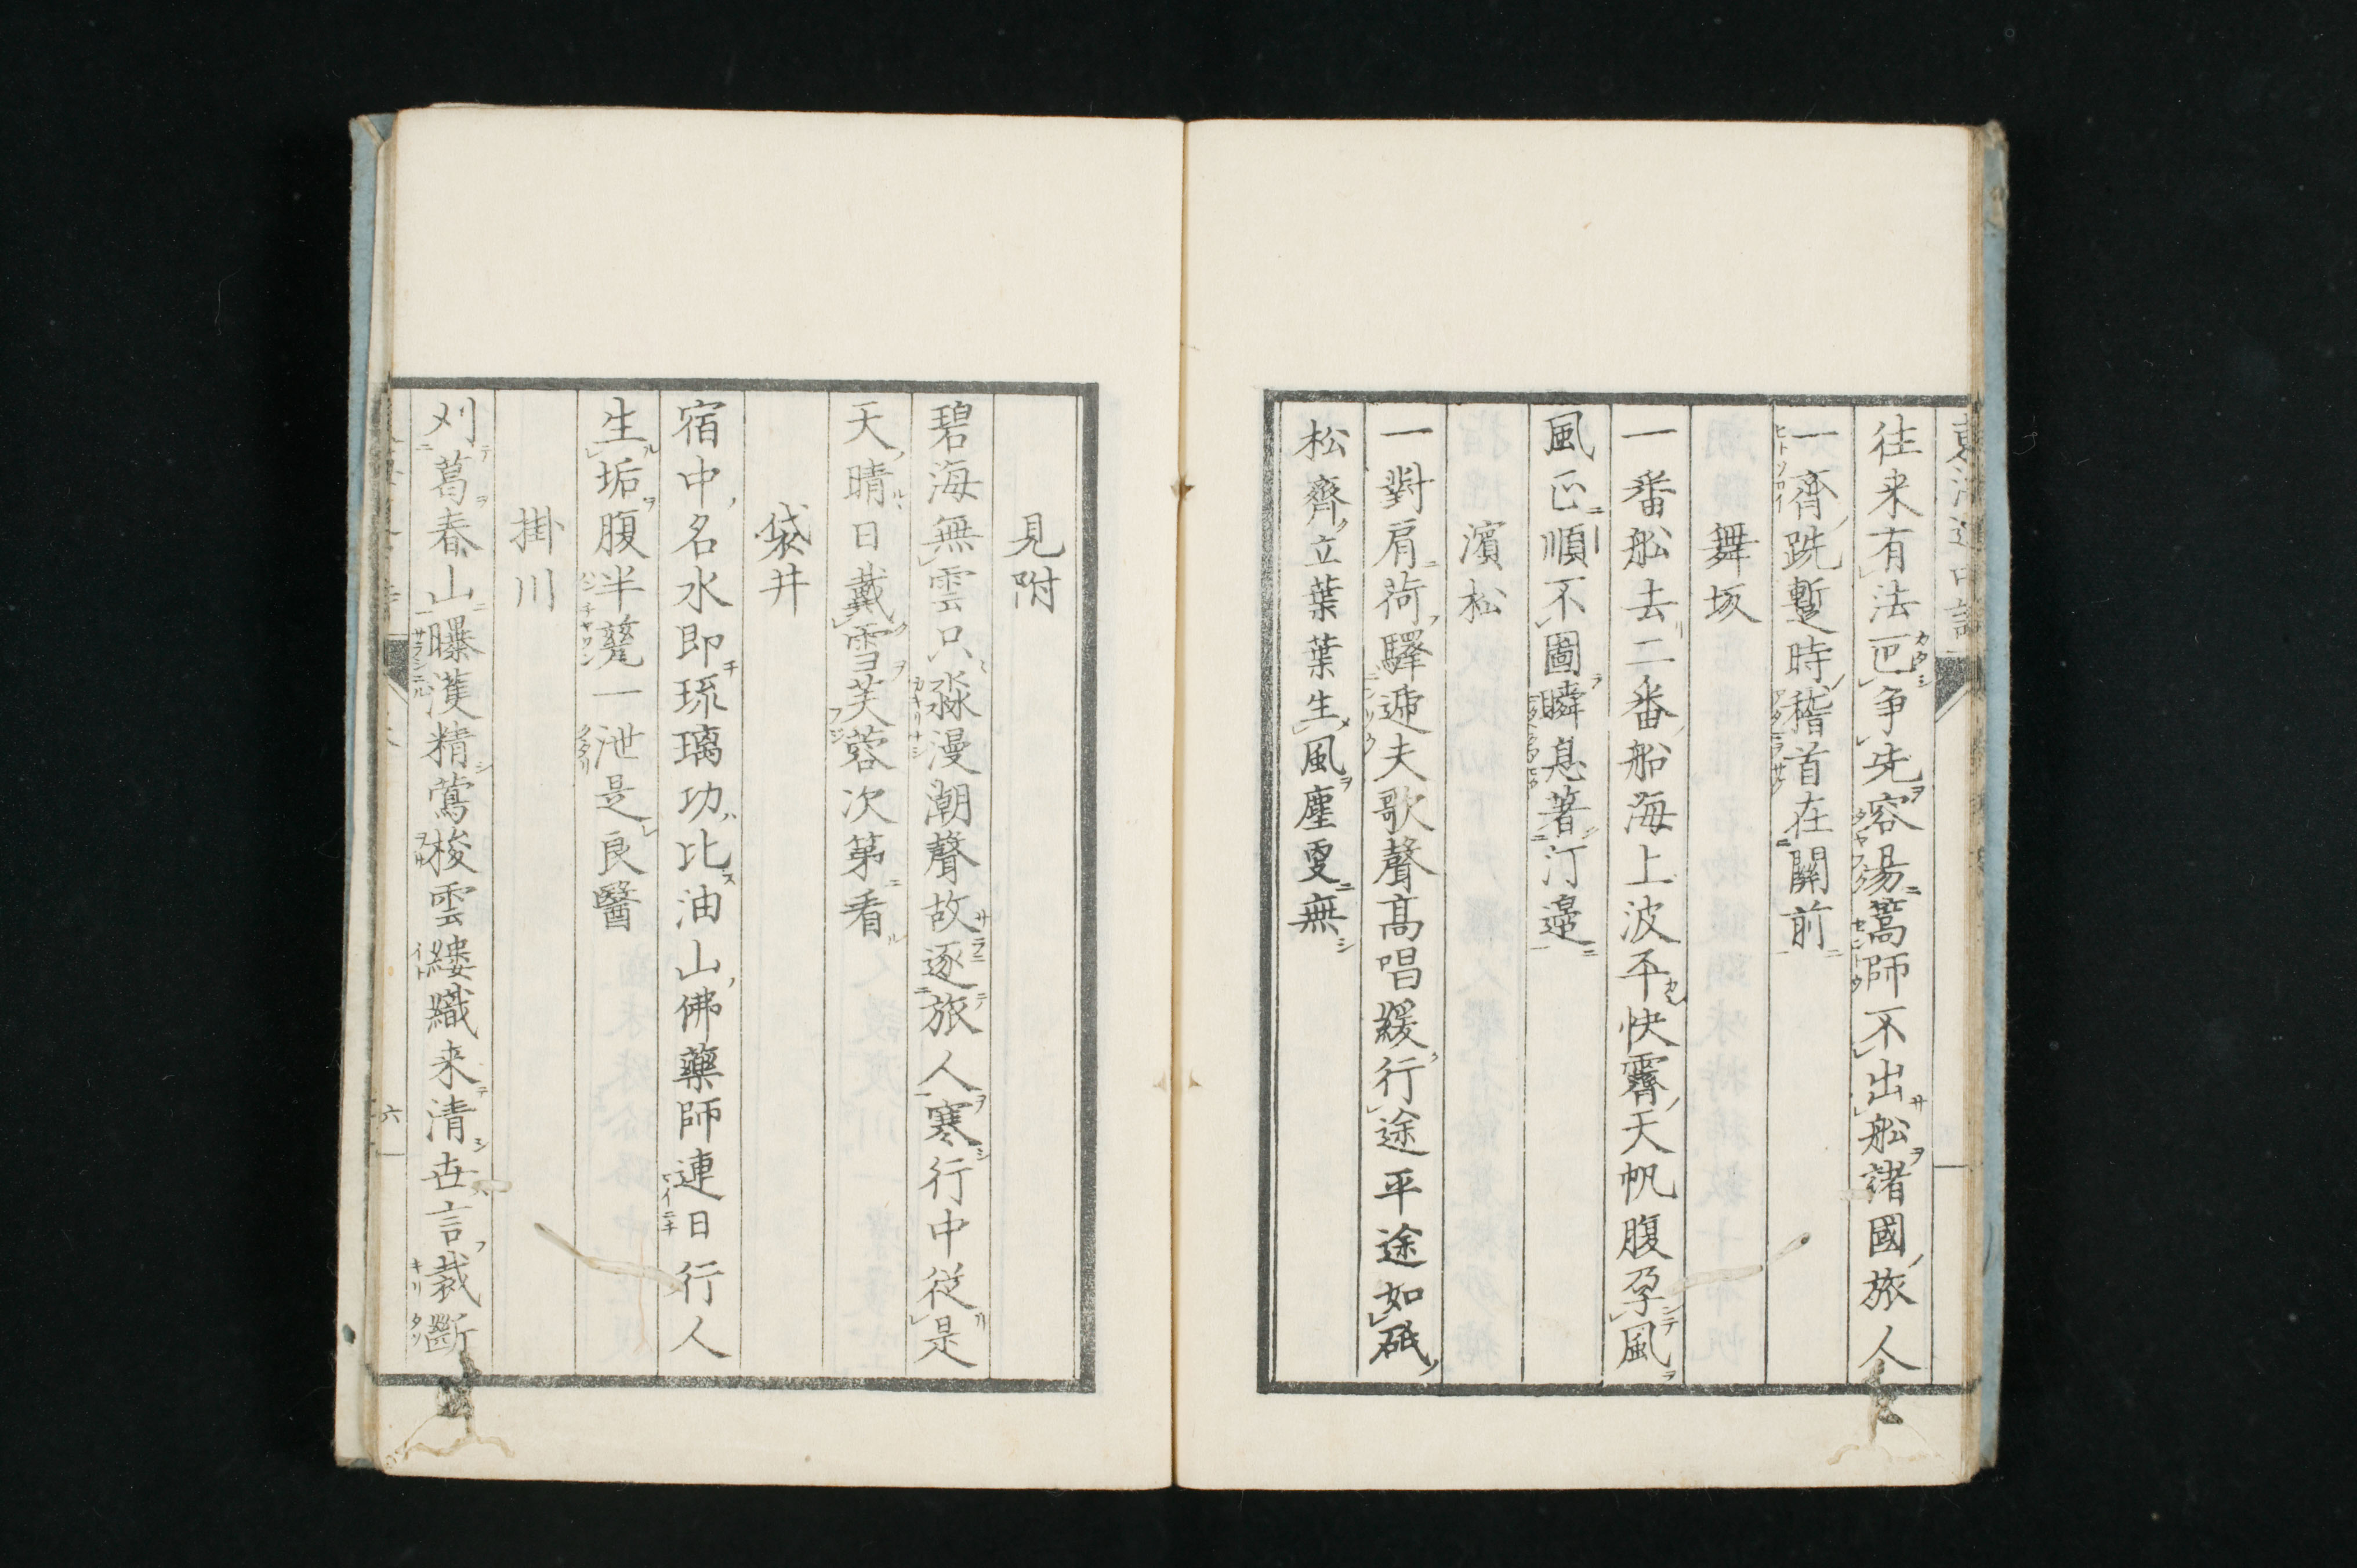 往来有法叵争先容易篙師不出舩諸國旅人
一齊跣蹔時稽首在關前
舞坂
一番舩去二番船海上波平快霽天帆腹孕風
風正順不圖瞬息著汀邊
濱松
一對肩荷驛遞夫歌聲高唱緩行途平途如砥
松齊立葉葉生風塵更無
見附
碧海無雲只淼漫潮聲故逐旅人寒行中従是
天晴日戴雪芙蓉次第看
袋井
宿中名水即琉璃功比油山佛藥師連日行人
生垢腹半甆一泄是良醫
掛川
刈葛春山曝濩精鶯梭雲縷織来清世言裁斷
六